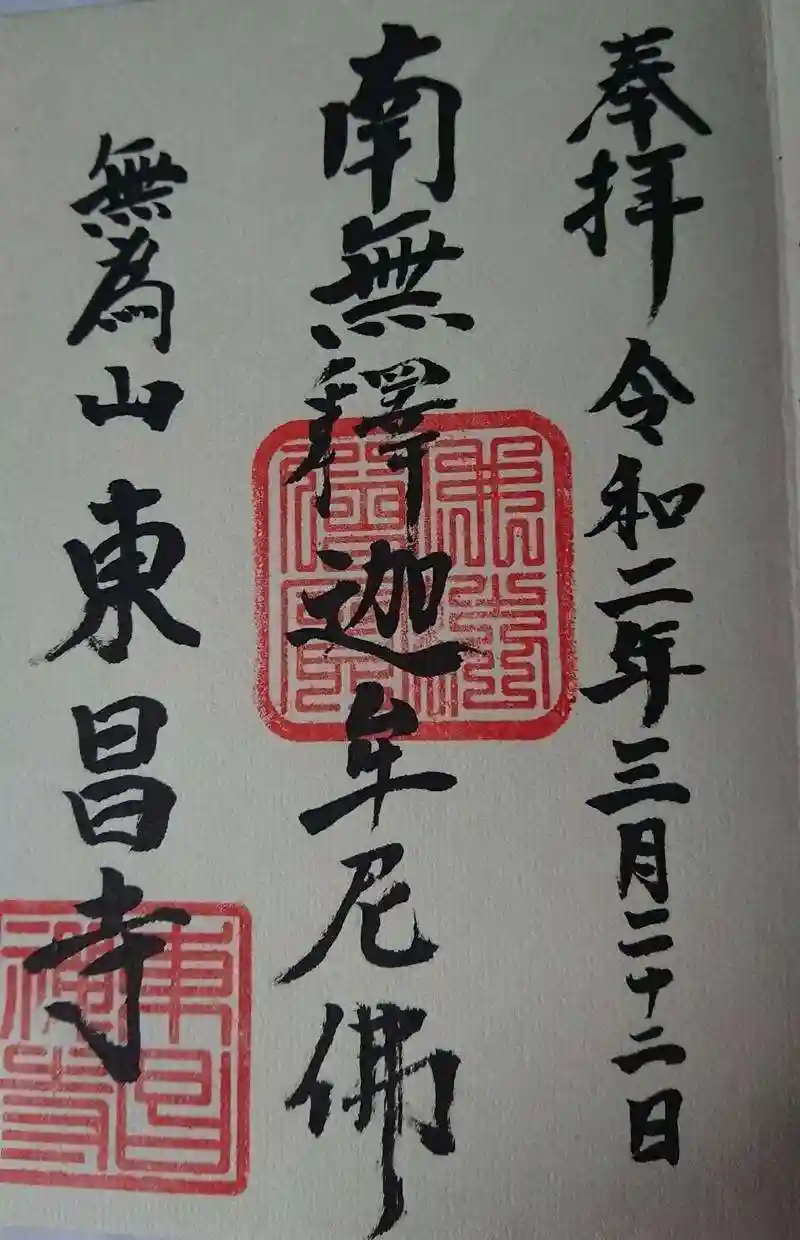 奉拝 令和二年三月二十二日
南無釋迦牟尼佛
無為山 東昌寺
東昌禅寺